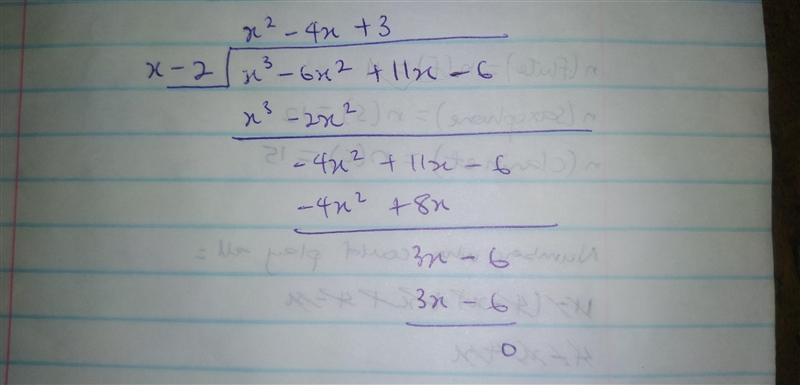 x² - 4x + 3
x - 2 x³ - 6x² + 11x - 6
x³ - 2x²
-4x² + 11x - 6
-4x² + 8x
3x - 6
3x - 6
0